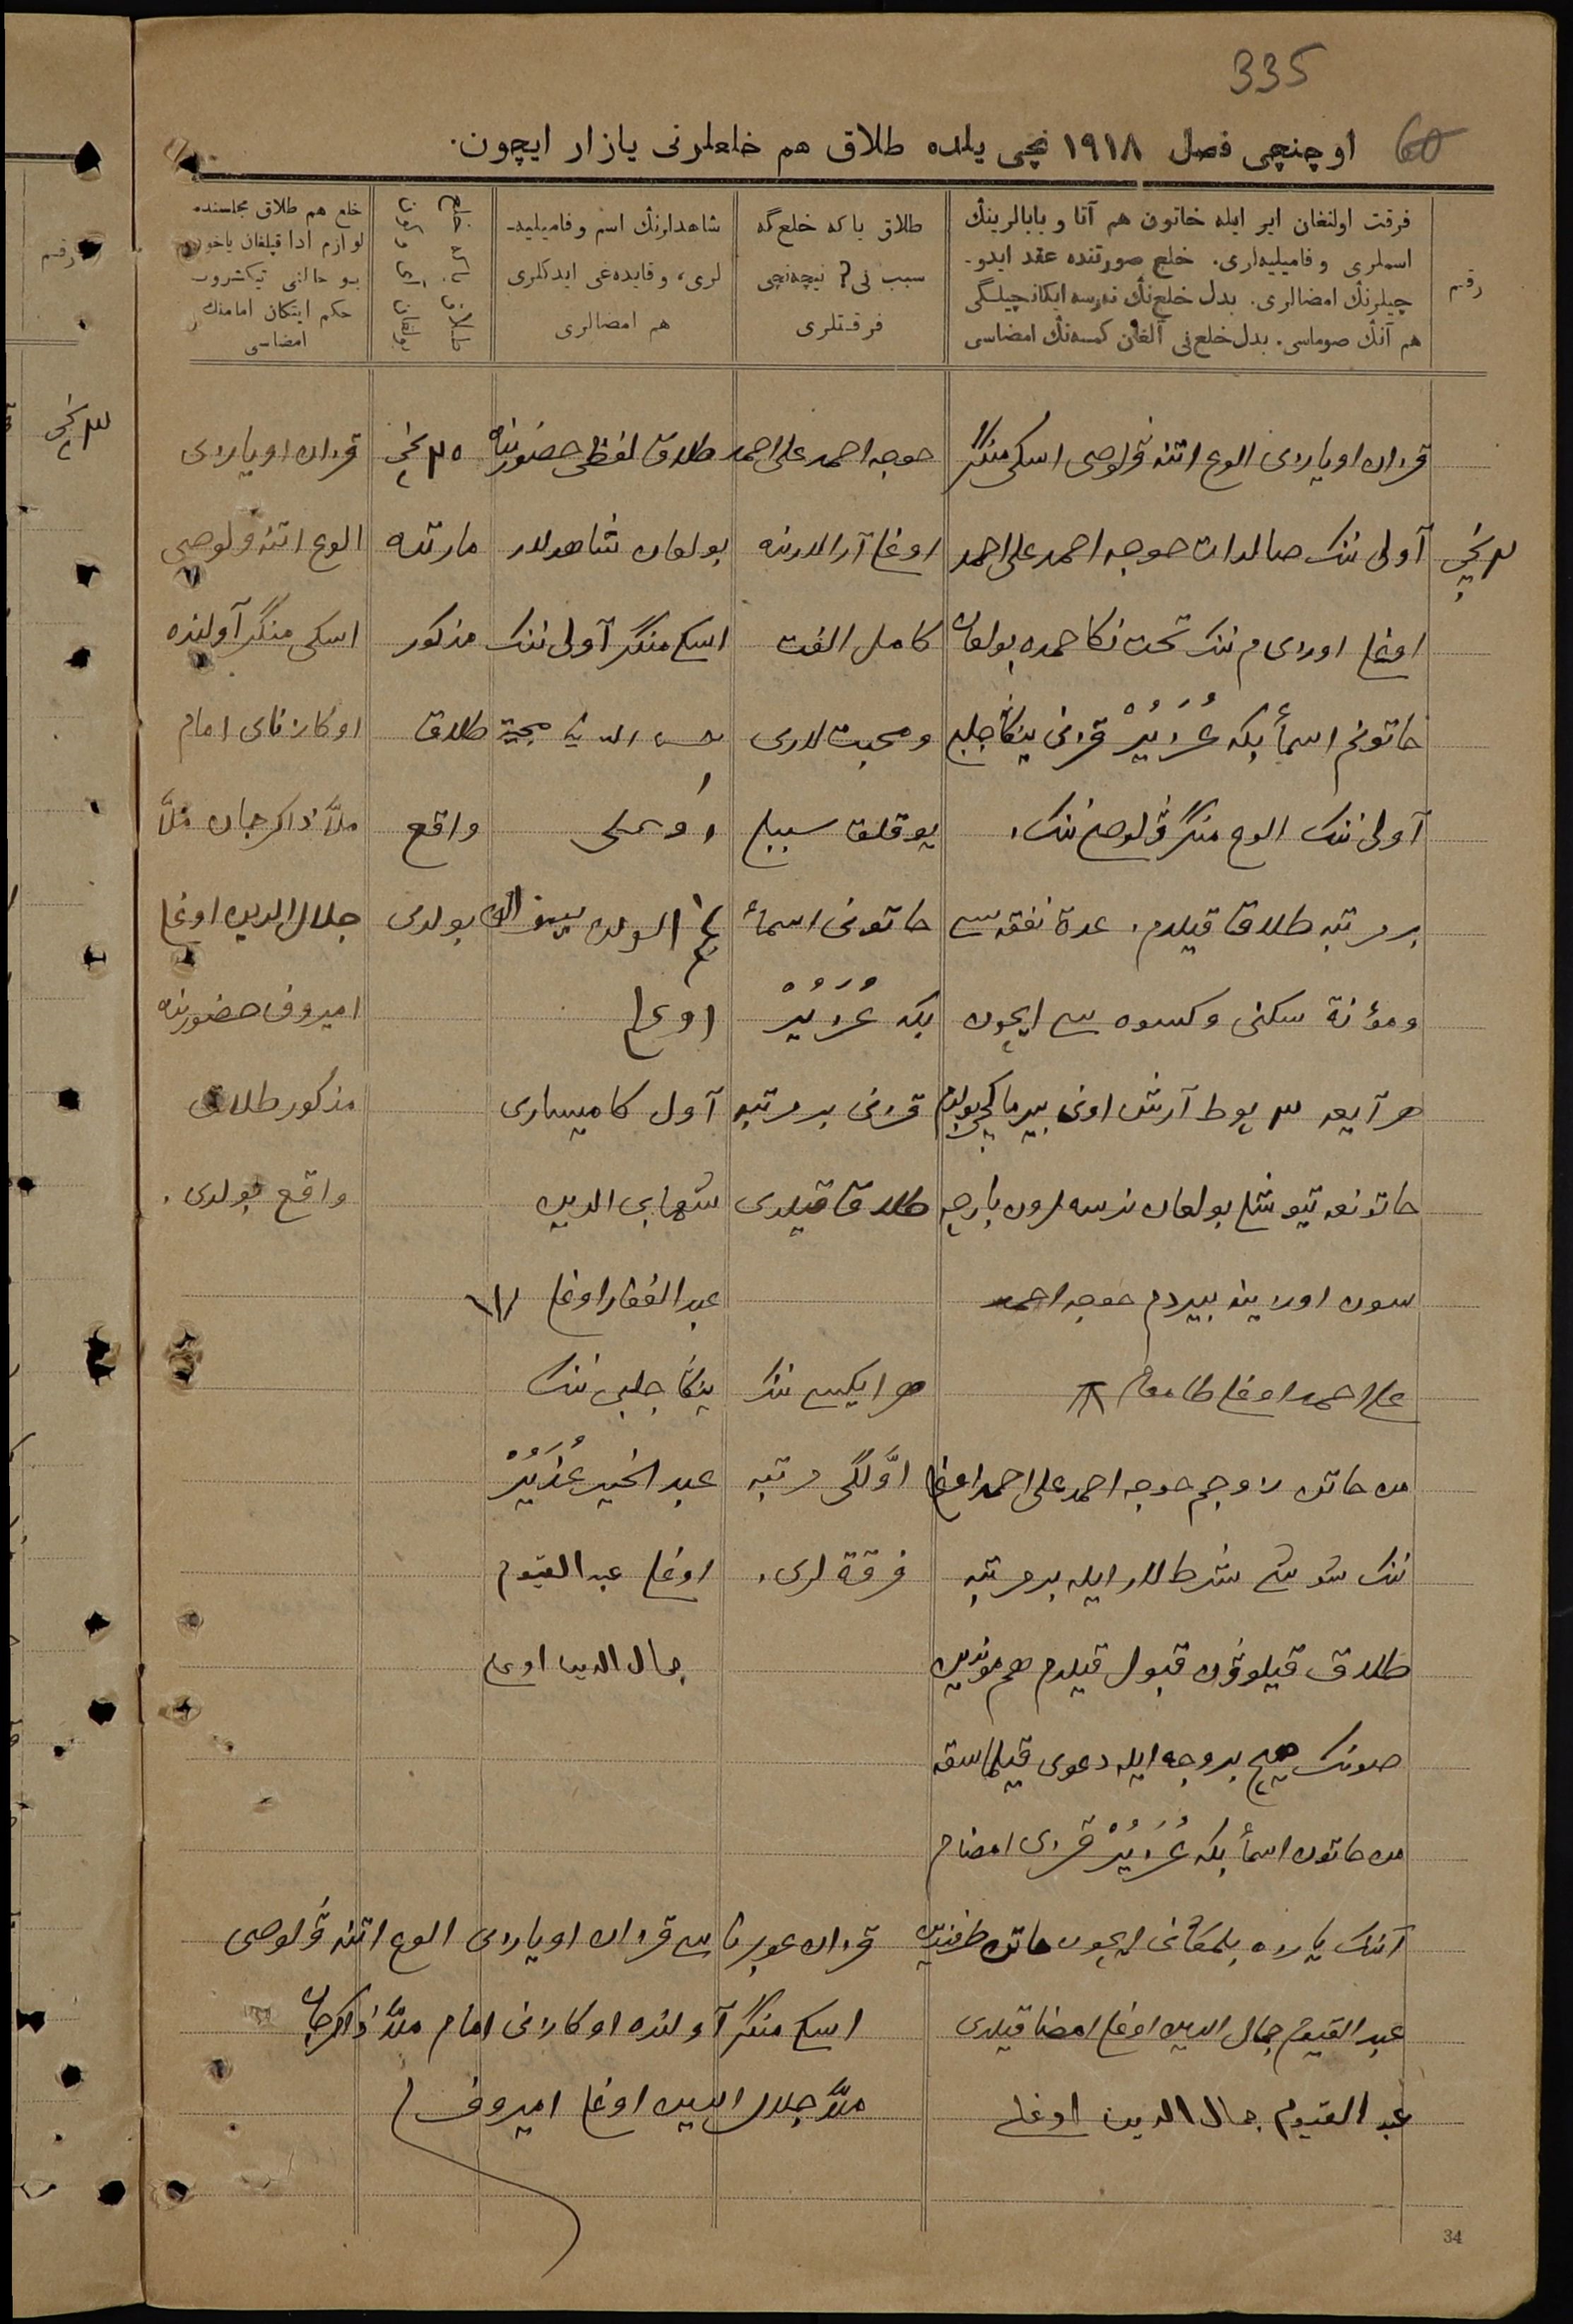 335
60
اوچنچی فصل ۱۹۱۸ نچی یلده طلاق هم خلعلرنی یازار ایچون.
رقم
فرقت اولنغان ایر ایله خاتون هم آتا و بابالرینڭ
اسملری و فامیلیه‌لری. خلع صورتنده عقد ایدو-
چیلرنڭ امضالری. بدل خلع‌نڭ نه‌رسه ایکانچیلگی
هم آنڭ صوماسی. بدل خلع‌نی آلغان کمسه‌نڭ امضاسی
طلاق یا که خلع‌گه
سبب نی؟ نیچه‌نچی
فرقتلری
شاهدلرنڭ اسم و فامیلیه-
لری، و قایده‌غی ایدکلری
هم امضالری
خلع هم طلاق مجلسنده
لوازم ادا قیلغان یاخود
بو حالنی تیکشروب
حکم ایتکان امامنڭ
امضاسی
رقم
۳ نچی
۲ نچی
قزان اویازی الوغ اتنه ولوصی اسکی منگر
آولی ننک صالدات خوجه احمد علی احمد
اوغلی اوزم ننک تحت نکاحمده بولغان
خاتونم اسمأ بکه عُزَیُرْ قزنی ینکا جلبی
آولی ننک الوغ منگر ولوصی ننک،
بر مرتبه طلاق قیلدم، عدة نفقه سی
و مؤنة سکنی و کسوه سی ایچون
هر آیغه ۳ پوط آرش اونی بیرماکچی بولدم
خاتونغه تیوشلی بولغان نرسه لرون بارچه
سون اوزینه بیردم خوجه احمد
علی احمد اوغلی
من خاتون زوجم خوجه احمد علی احمد اوغلی
ننک شوشی شرطلار ایله بر مرتبه
طلاق قیلوون قبول قیلدم هم موندین
صونک هیچ بر وجه ایله دعوی قیلماسقه
من خاتون اسمأ بکه عُزَیُرْ قزی امضام
آننک یازه بلمکانی ایچون خاتون طرفندین
عبد القیوم جمال الدین اوغلی امضا قیلدی
عبد القیوم جمال الدین اوغلی
خوجه احمد علی احمد
اوغلی آرالارنده
کامل الفت
و محبت لاری
یوقلق سببلی
خاتونی اسمأ
بکه عُزَیُرْ
قزنی بر مرتبه
طلاق قیلدی
هر ایکیسی ننک
اوّلگی مرتبه
فرقة لری،
طلاق لفظی حضورنده
بولغان شاهدلار
اسکی منگر آولی ننک
اوغلی
آول کامیساری
شهاب الدین
عبد الغفار اوغلی
ینکا جلبی ننک
عبد الخبیر عُزَیُرْ
اوغلی عبد القیوم
جمال الدین اوغلی
۲۵ نچی
مارتده
مذکور
طلاق
واقع
بولدی
قزان اویازی
الوغ اتنه ولوصی
اسکی منگر آولنده
اوکازنای امام
ملّا ذاکرجان ملّا
جلال الدین اوغلی
امیروف حضورنده
مذکور طلاق
واقع بولدی.
قزان غوبرناسی قزان اویازی الوغ اتنه ولوصی
اسکی منگر آولنده اوکازنی امام ملّا ذاکرجان
ملّا جلال الدین اوغلی امیروف
34